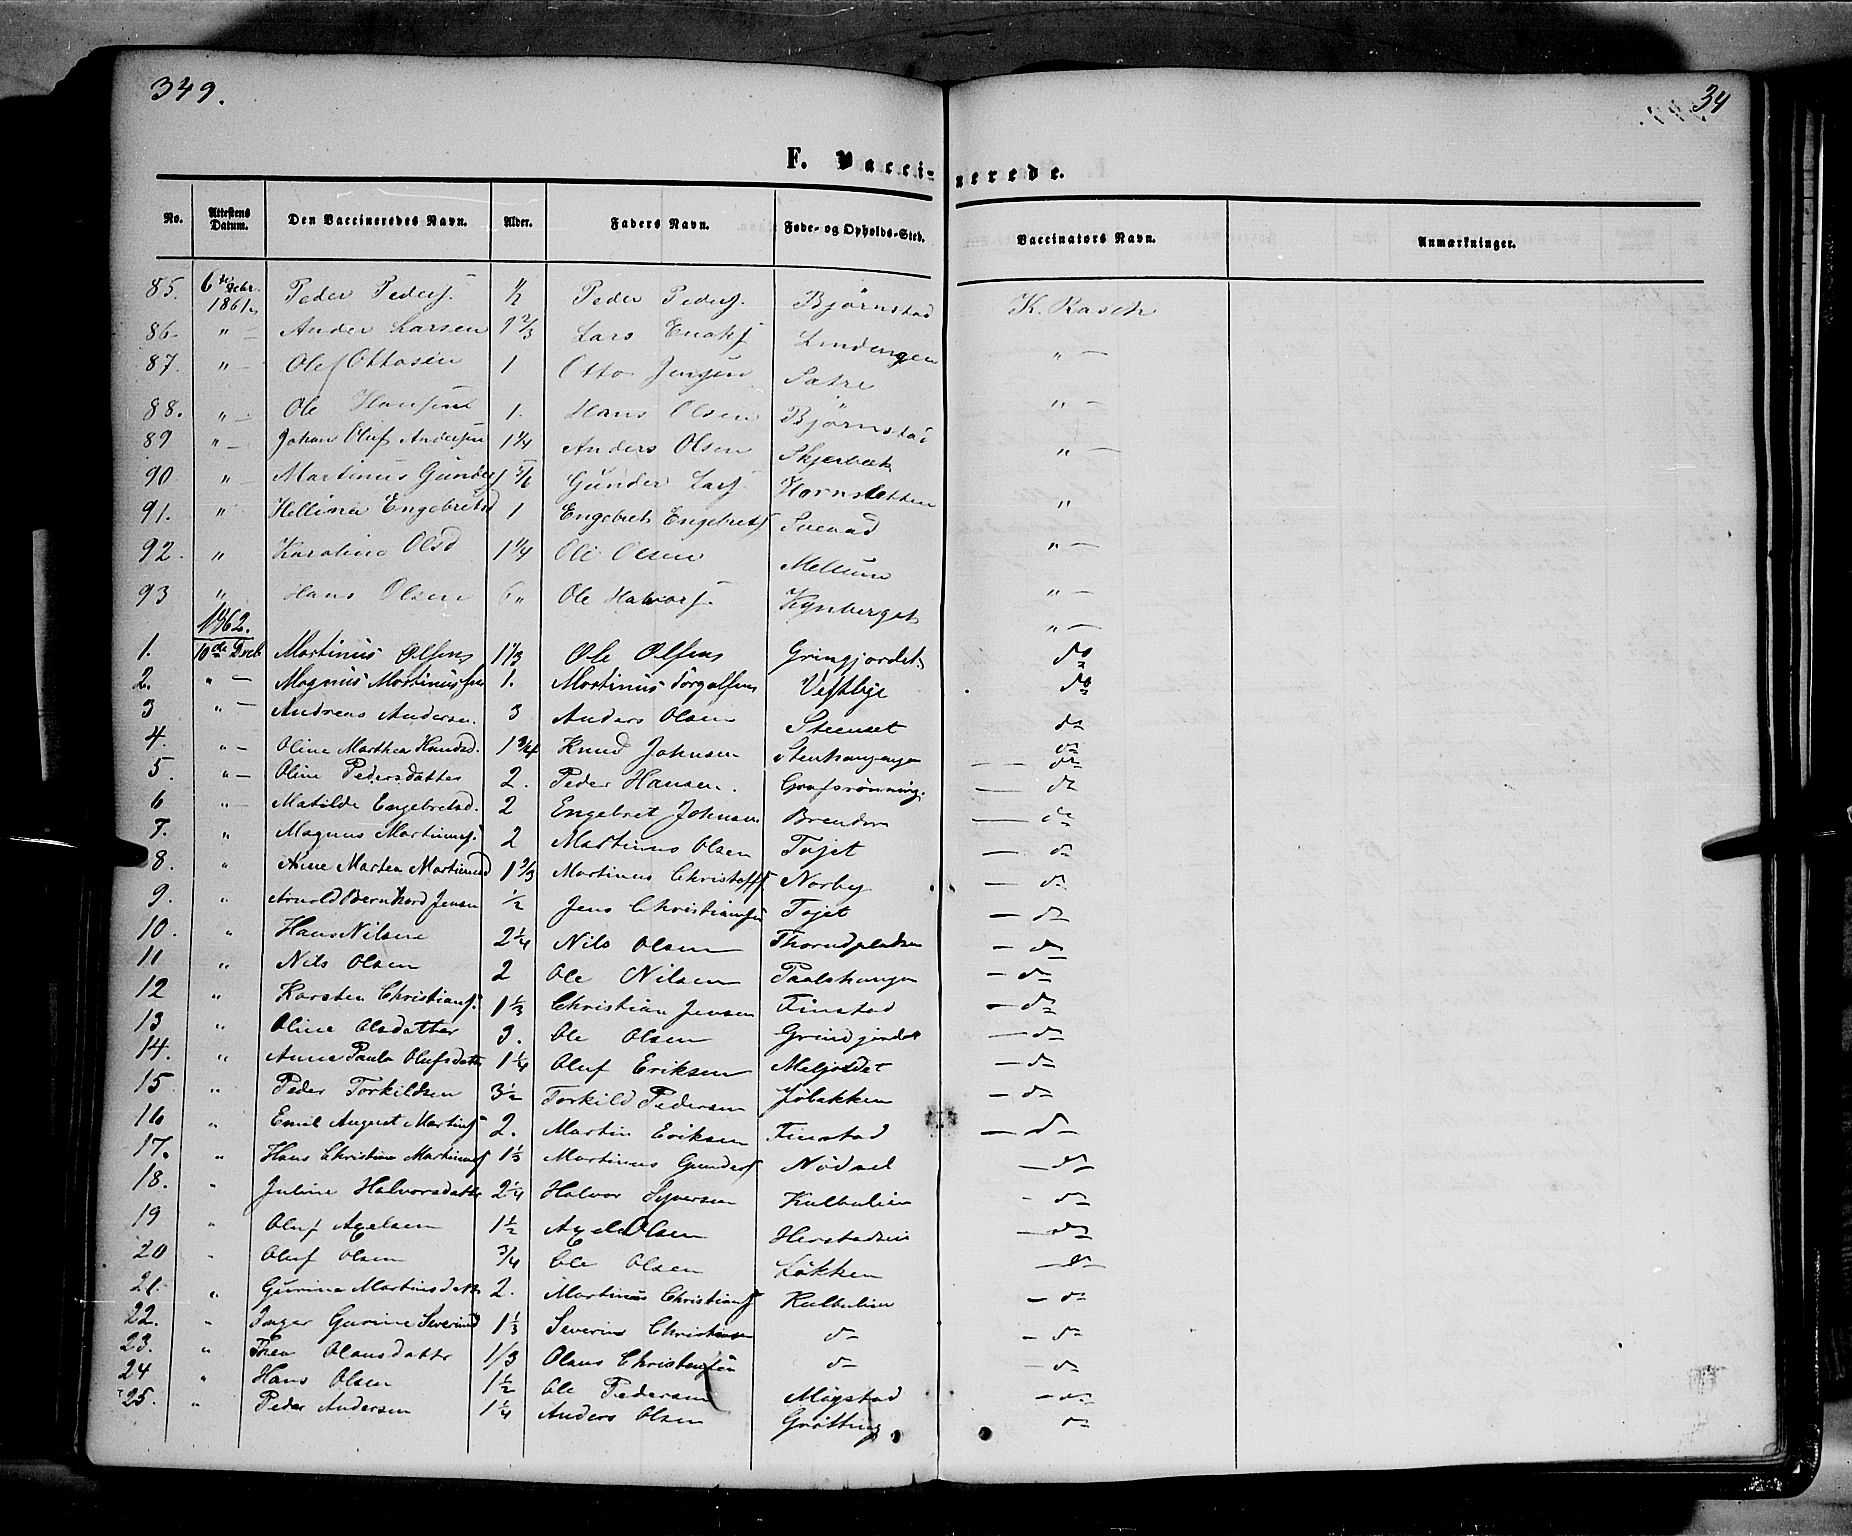 349.
34
F. Vaccinerede.
No. Attestens Datum. Den Vaccineredes Navn. Alder. Faders Navn. Føde- og Opholds-Sted. Vaccinators Navn. Anmærkninger.
85. 6te Febr. 1861. Peder Peders. ½ Peder Peders. Bjørnstad K. Rasch
86. " — Ander Larsen 1⅔ Lars Lindengen " —
87. " — Olef Ottosen 1 Otto Jensen Sætre " —
88. " — Ole Hansen 1. Hans Olsen Bjørnstad " —
89 " — Johan Oluf Andersen 1¼ Anders Olsen Skjerbæk "
90 " — Martinus Gunders 5/6 Gunder Lars. Hornsletten " —
91. " Hellina Engebretsd 1 Engebret Engebrets Svenad " —
92. " Karoline Olsd 1¼ Ole Olsen Mellum " —
93 " Hans Olsen 6 " Ole Halvors. Kynberget " —
1862.
1. 10de Decb. Martinus Olsen 1⅓ Ole Olsen Grinjordet do
2. " — Magnus Martinussen 1. Martinus Torgalsen Vestbye do
3 " — Andreas Andersen. 3 Anders Olsen Steenset do
4. " — Oline Marthea Knudsd. 1¾ Knud Johnsen do
5. " — Oline Pedersdatter 2. Peder Hansen. Grafsrønning. — do
6 " — Matilde Engebretsd. 2 Engebret Johnsen Brenden — do
7. " Magnus Martinuss. 2 Martinus Olsen Tøjet — do
8. " Anne Martea Martinusd 1⅔ Martinus Christoffs Norby — do
9. " Arnold Bernhard Jensen ½ Jens Christiansen Tøjet — do
10. " Hans Nilsen 2¼ Nils Olsen Thorudpladsen — do
11 " Nils Olsen 2 Ole Nilsen Paalshaugen — do
12 " Karsten Christians. 1⅓ Christian Jensen Finstad — do
13 " Oline Olsdatter 3. Ole Olsen Grindjordet — do
14. " Anne Paula Olufsdatter 1¼ Oluf Eriksen Meljordet — do
15 " Peder Torkildsen 3½ Torkild Pedersen Jøbakken — do
16 " Emil August Martins 2. Martin Eriksen Finstad — do —
17. " Hans Christian Martinuss 1⅓ Martinus Gunders Nødael — do
18. " Juline Halvorsdatter 2¼ Halvor Syversen Kulbulien — do
19 " Oluf Axelsen 1½ Axel Olsen Herstadseie — do
20 " Oluf Olsen ¾ Ole Olsen Løkken — do
21. " Gurine Martinusdatter 2. Martinus Christians Kulbulien — do
22. " Inger Gurine Severinsd 1⅓ Severin Christiansen do — do
23. " Thea Olausdatter 1/3 Olaus Christensen do — do
24 " Hans Olsen 1½ Ole Pedersen Mogstad — do
25. " Peder Andersen 1¼ Anders Olsen Grøtting do